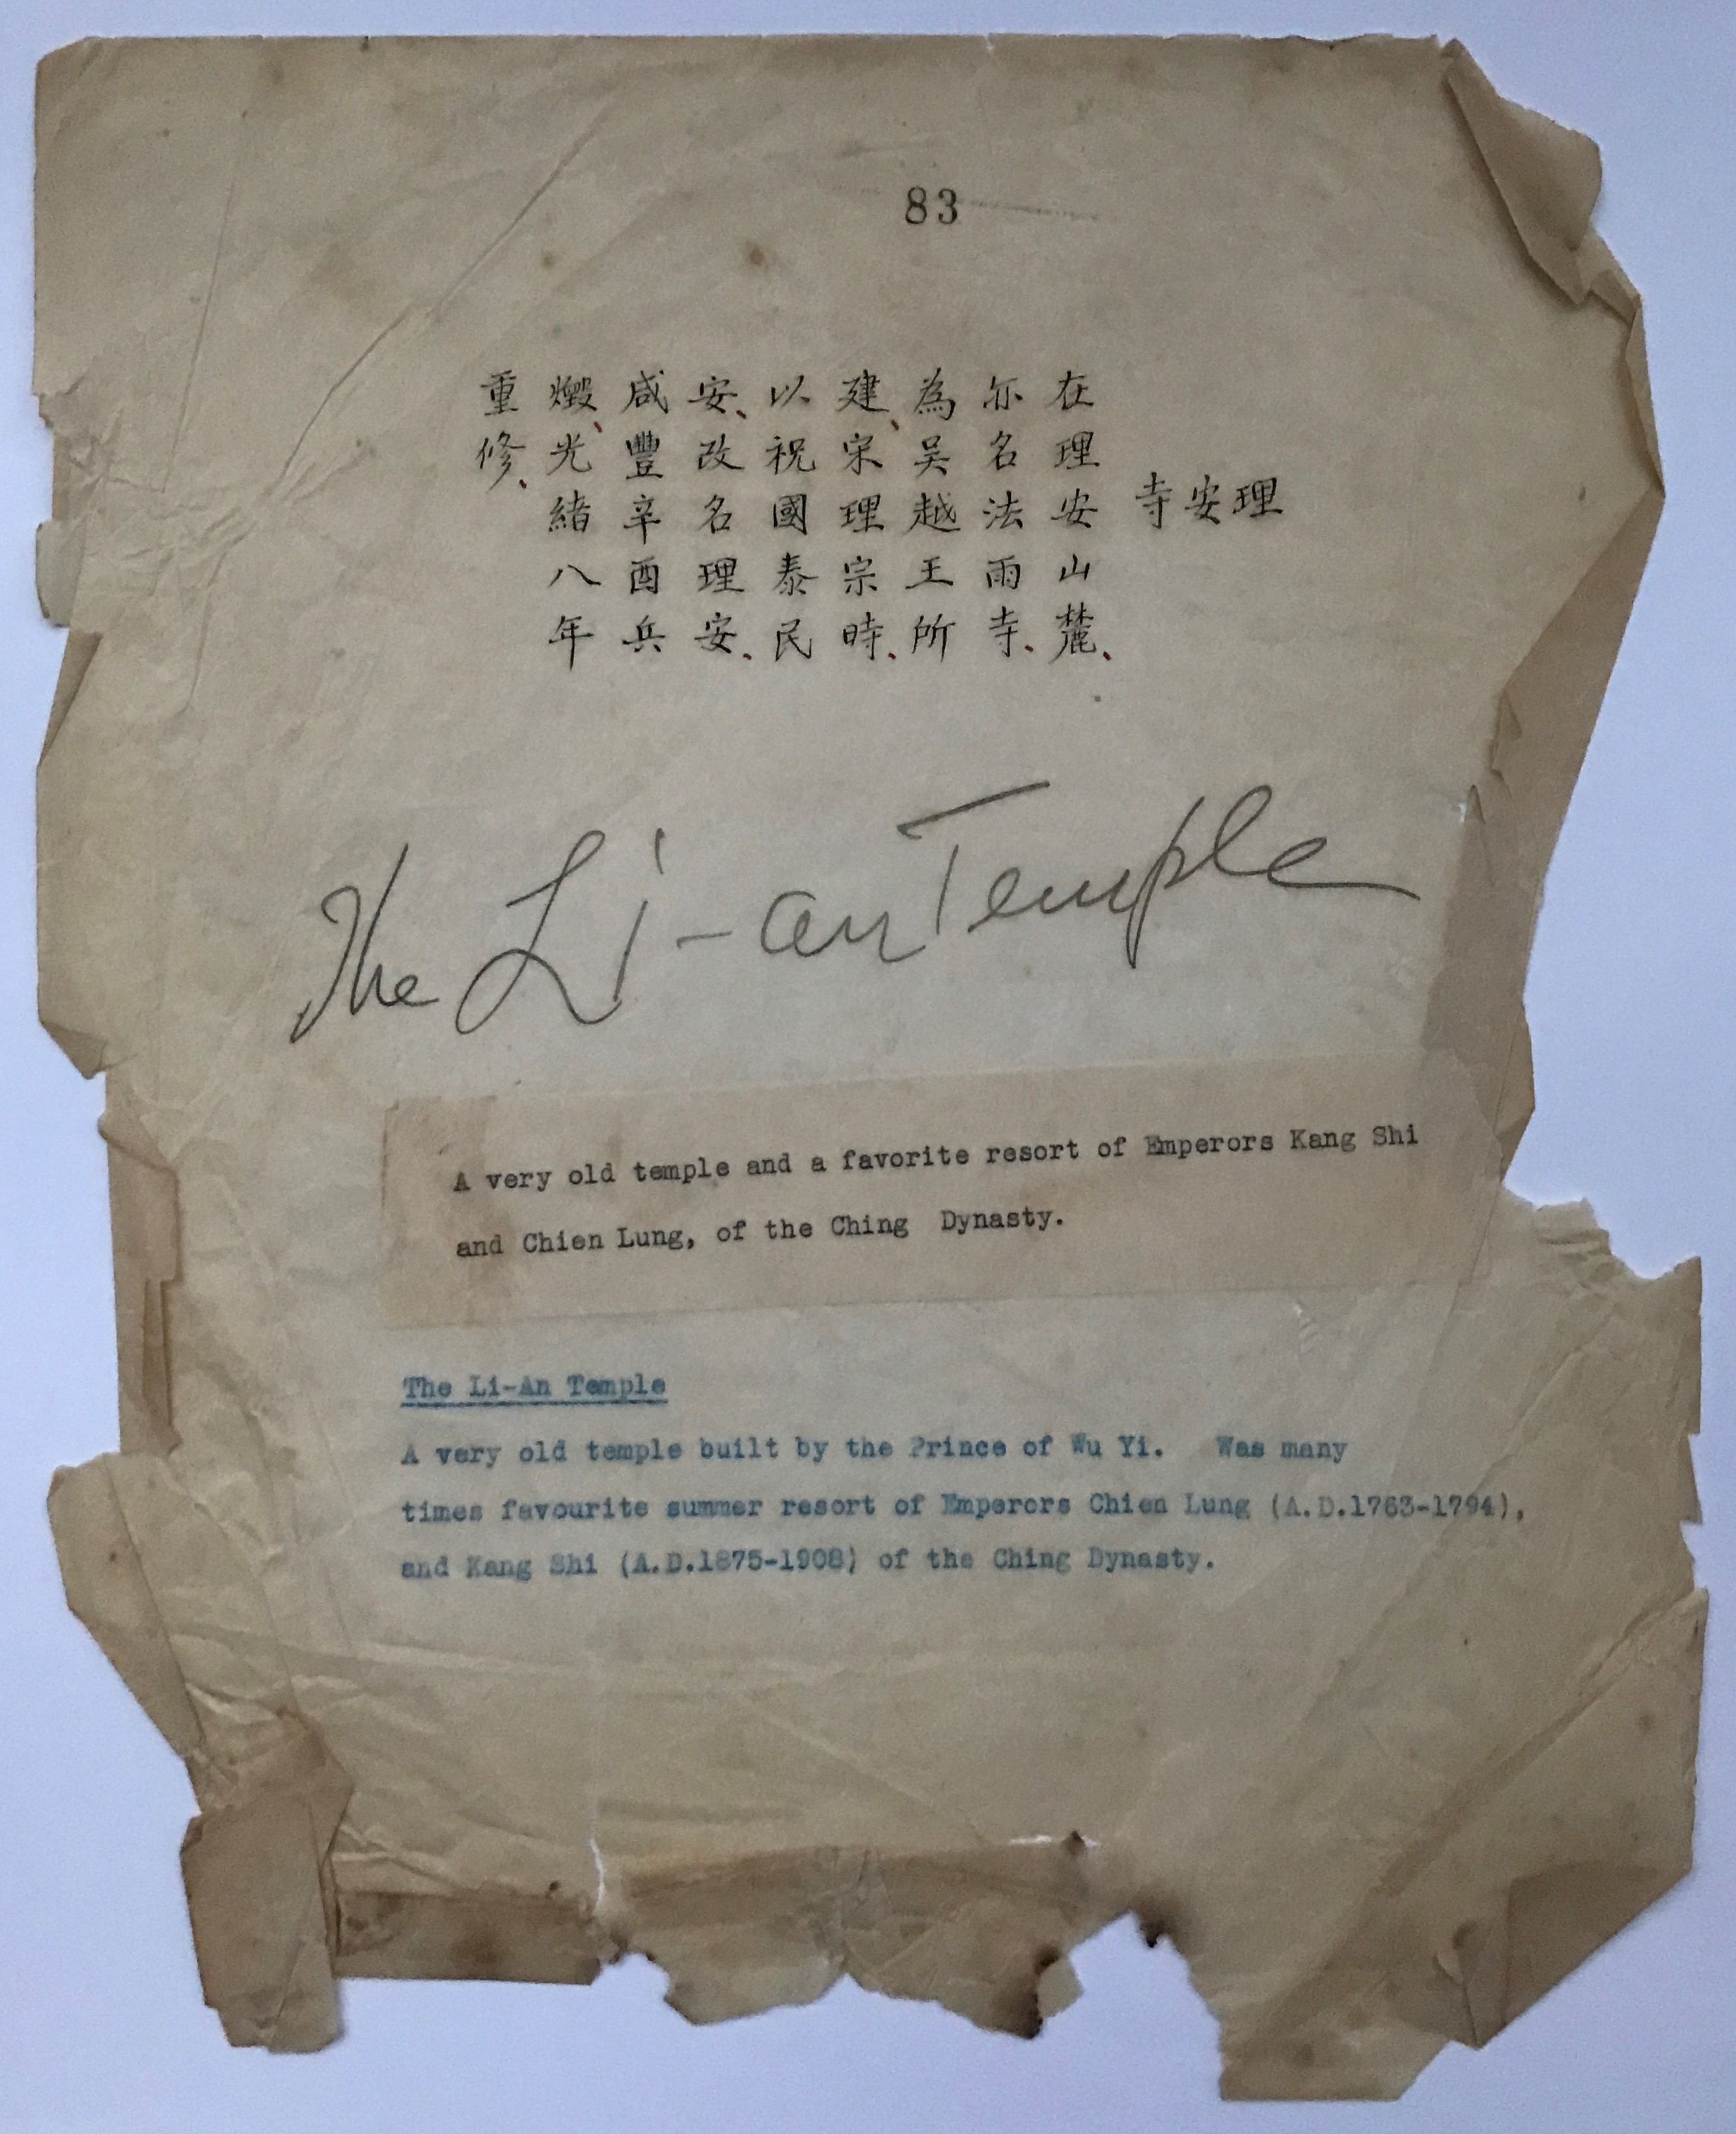 83
理安寺
在理安山麓、
亦名法雨寺、
為吳越王所
建、宋理宗時、
以祝國泰民
安、改名理安、
咸豐辛酉兵
燬、光緒八年
重修、
The Li-an Temple
A very old temple and a favorite resort of Emperors Kang Shi
and Chien Lung, of the Ching Dynasty.
The Li-An Temple
A very old temple built by the Prince of Wu Yi. Was many
times favourite summer resort of Emperors Chien Lung (A.D.1763-1794),
and Kang Shi (A.D.1875-1908) of the Ching Dynasty.